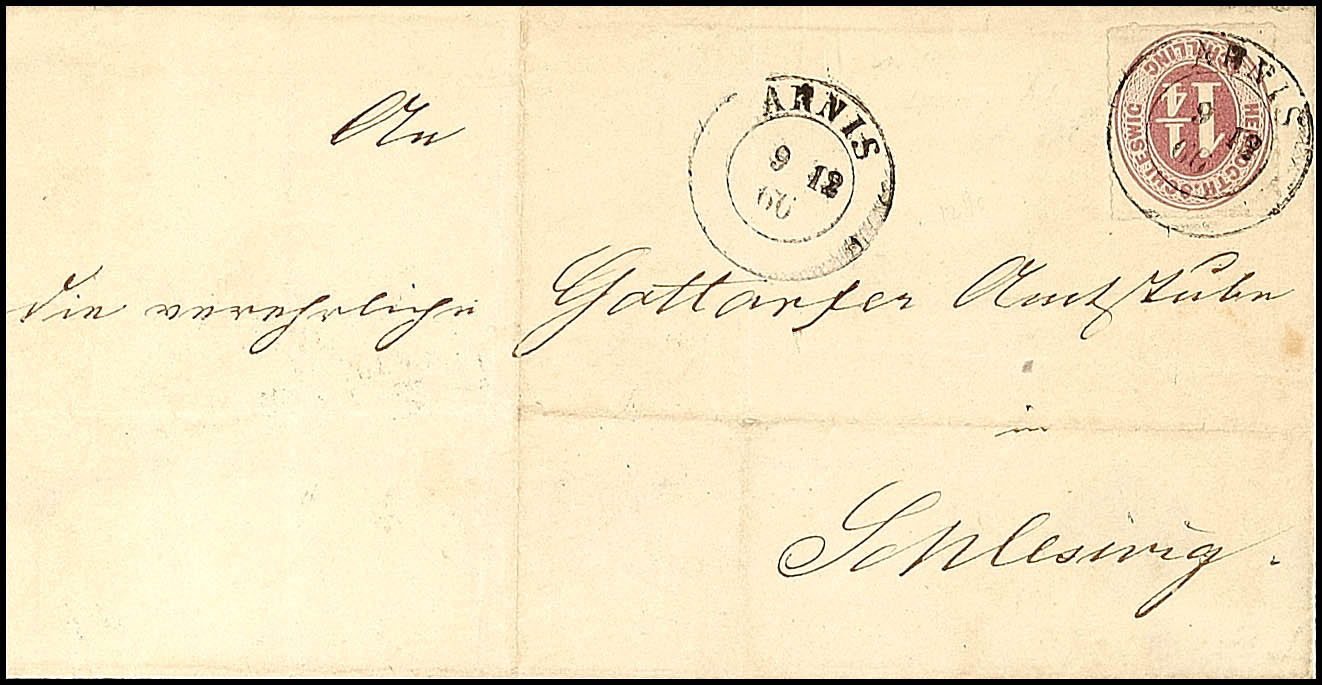 An
ARNIS
9 12
66
HERZOGTH. SCHLESWIG
1 1/4
SCHILLING
ARNIS
9 12
66
die verehrliche Gottorfer Amtstube
in
Schleswig.